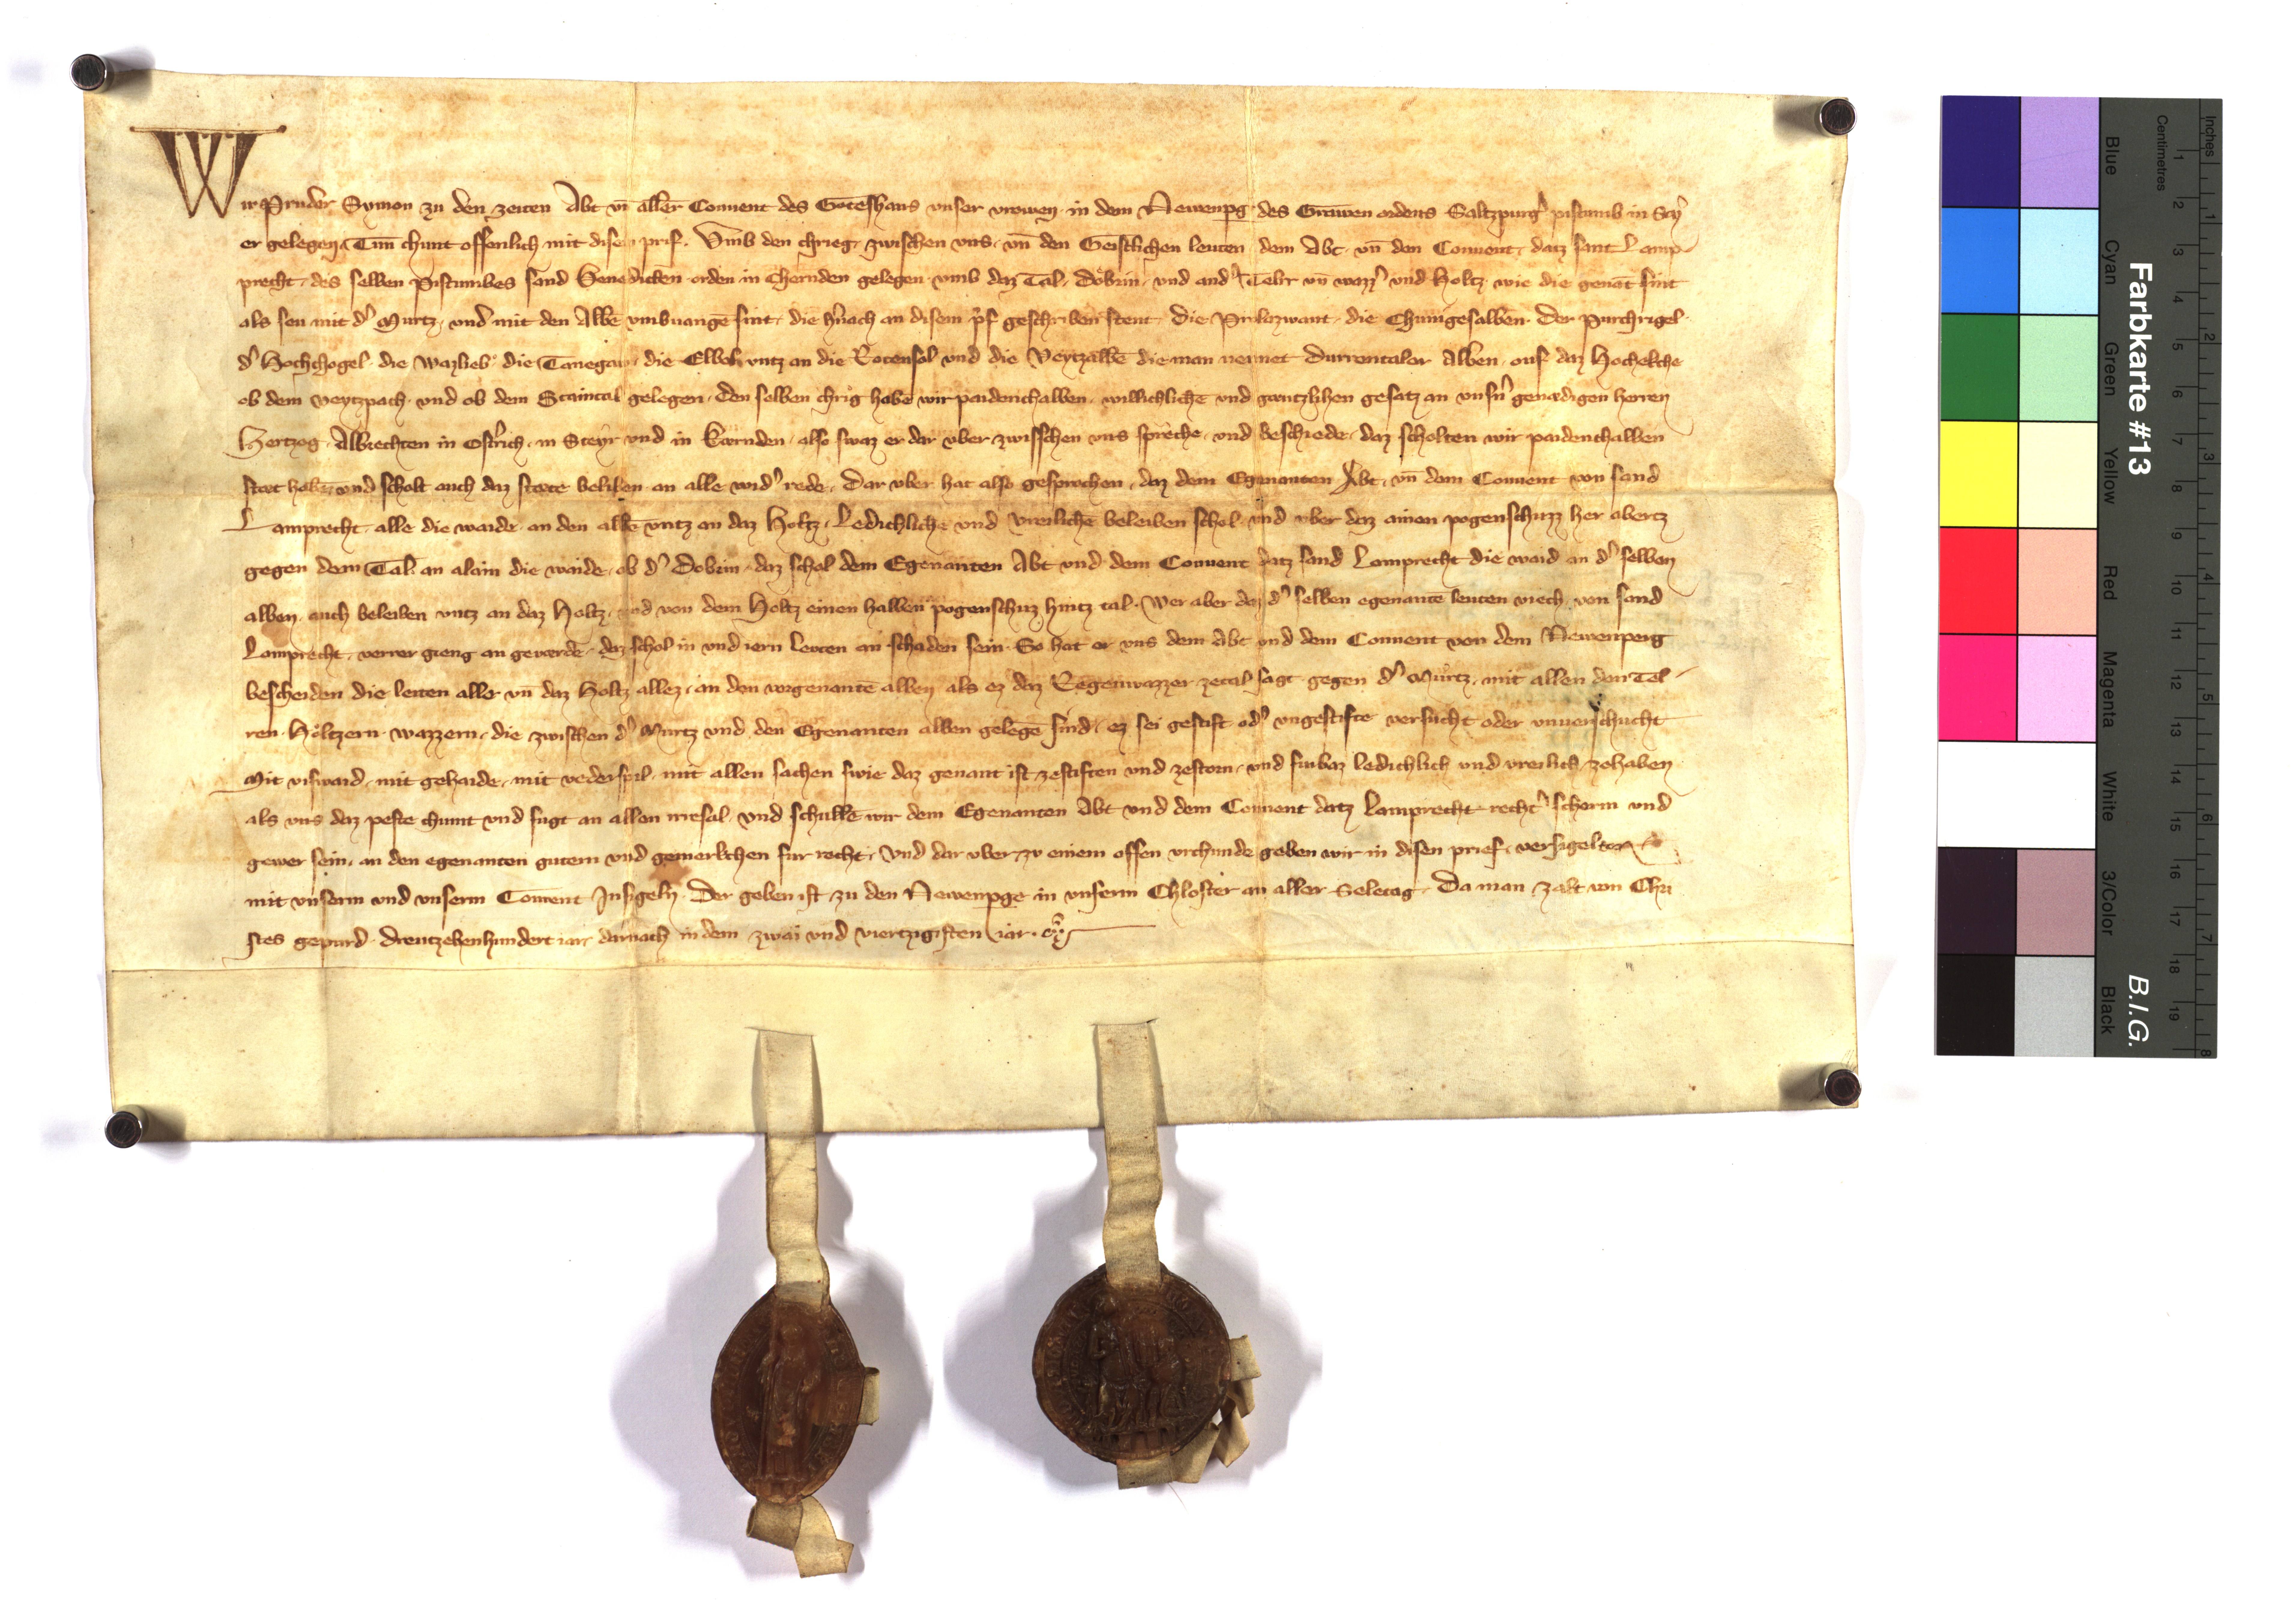 Wir Pruder Symon zu den zeiten Abt vn̄ aller Conuent des Goteshaus vnser vrowen in dem Newenpg des Grawen ordens Saltzpurgˀ pistumb in Stÿ
er gelegen. Tun chunt offenlich mit disem prif. Vmb den chrieg zwischen vns vn̄ den Geistlichen leuten dem Abt vn̄ den Conuent datz sant Lamp
precht des selben Pistumbes sand Benedicten orden in Chernden gelegen vmb daz Tal Dobrin vnd andˀ Telr vn̄ wazzˀ vnd Holtz wie die genāt sint
als seu mit dˀ Murtz vnd mit den Albē vmbuangē sint die hˀnach an disem pˀf geschriben stent die die Chunigesalben der Purchrigel
dˀ Hochchogel die die Tanegar die vntz an die Rotensol vnd die Veytzalbē die man nennet Durrentalor Alben ouf daz Hochekche
ob dem veytzpach vnd ob dem Staintal gelegen. den selben chrig habē wir paidenthalben willichliche vnd gantzlihen gesatz an vnsˀn genædigen herren
Hertzog Albrechten in Ostˀrich in Steyr vnd in kærnden also swaz er dar vber zwisschen vns spreche vnd beschiede daz scholten wir paidenthalben
stæt haben vnd scholt auch daz stæte beliben an alle widˀ rede. Dar vber hat also gesprochen daz dem Egenanten Abt vn̄ dem Conuent von sand
Lamprecht alle die waide an den albē vntz an daz Holtz Ledichliche vnd vreiliche beleiben schol vnd vber daz ainen pogenschuzz her abertz
gegen dem Tal an alain die waide ob dˀ Dobrin daz schol dem Egenanten Abt vnd dem Conuent datz sand Lamprecht die waid an dˀ selben
alben auch beleiben vntz an daz Holtz vnd von dem Holtz einen halben pogenschuz hintz tal. Wer aber daz dˀ selben egenantē leuten viech von sand
Lamprecht verrer gieng an geværde daz schol in vnd iern leuten an schaden sein. So hat er vns dem Abt vnd dem Conuent von dem Newenperg
bescheiden die leiten aller vn̄ daz Holtz allez an den vorgenantē alben als ez daz Regenwazzer zetal sagt gegen dˀ Murtz mit allen den Tel
ren Höltzern wazzern die zwischen dˀ Murtz vnd den Egenanten alben gelegē sind ez sei gestift odˀ vngestifte versucht oder vnuerschucht
Mit viswaid mit gehaide mit vederspil mit allen sachen swie daz genant ist zestiften vnd zestoren vnd furbaz ledichlich vnd vreilich zehaben
als vns daz peste chumt vnd fugt an allen irresal vnd schullē wir dem Egenanten Abt vnd dem Conuent datz Lamprecht rechtˀ scherm vnd
gewer sein an den egenanten gutern vnd gemerkchen fur recht. Vnd dar vber zv einem offen vrchunde geben wir in disen prief versigelten
mit vnserm vnd vnserm Conuent Insigeln. Der geben ist zu den Newenpge in vnserm Chloster an aller Seletag. Da man zalt von Chri
stes gepurd dreutzehenhundert iar darnach in dem zwai vnd viertzigisten iar.
Farbkarte #13
B.I.G.
Blue Cyan Green Yellow Red Magenta White 3/Color Black
Inches 1 2 3 4 5 6 7 8
Centimetres 1 2 3 4 5 6 7 8 9 10 11 12 13 14 15 16 17 18 19